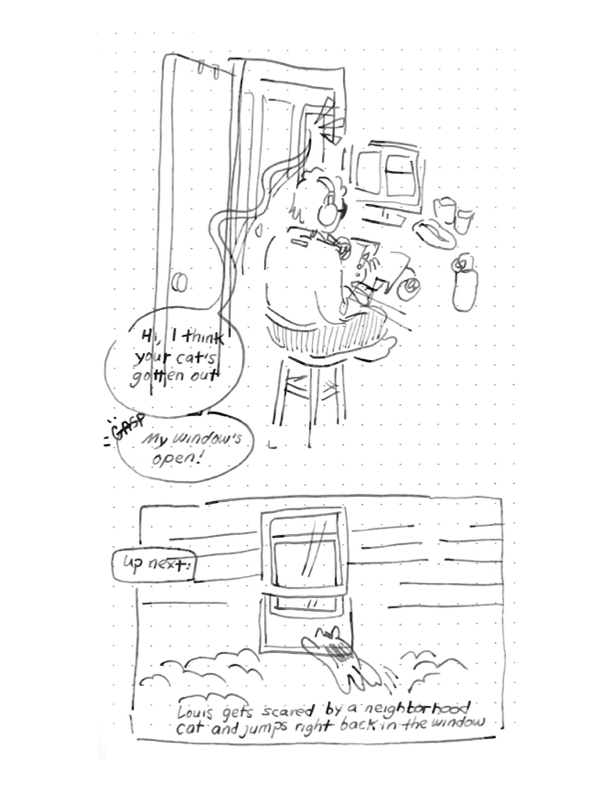 Hi, I think
your cat's
gotten out
GASP
My window's
open!
up next:
Louis gets scared by a neighborhood
cat and jumps right back in the window